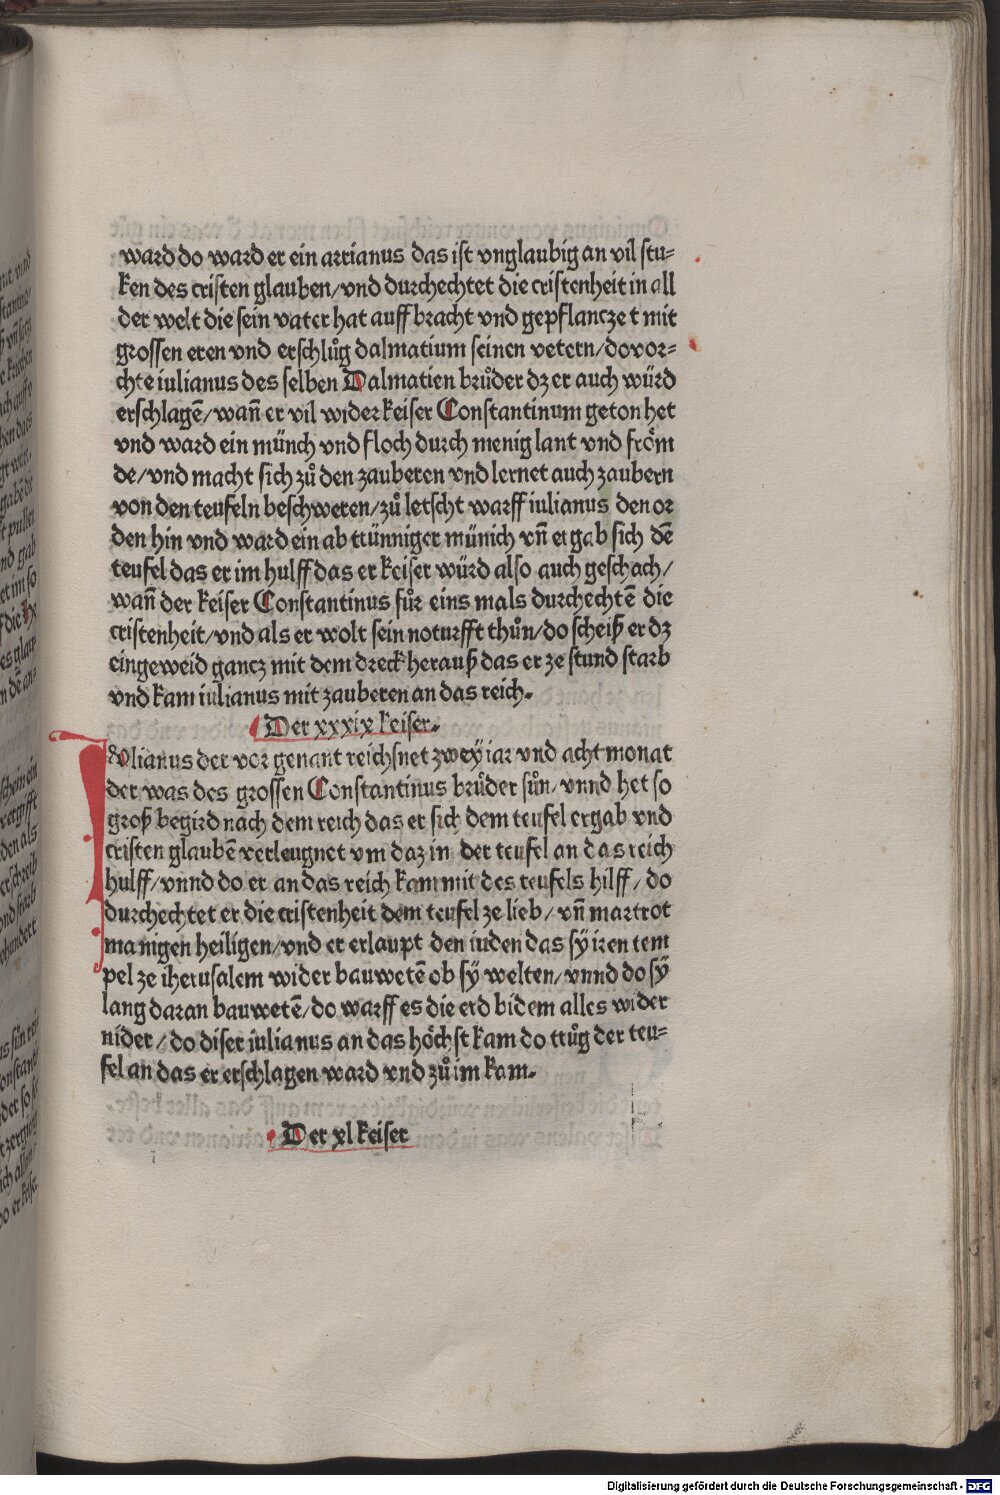 ward do ward er ein arrianus das ist vnglaubig an vil stu-
ken des cristen glauben/vnd durchechtet die cristenheit in all
der welt die sein vater hat auff bracht vnd gepflancze t mit
grossen eren vnd erschlůg dalmatium seinen vetern/do vor-
chte iulianus des selben Dalmatien brůder dz er auch würd
erschlagē/wañ er vil wider keiser Constantinum geton het
vnd ward ein münch vnd floch durch menig lant vnd fröm
de/vnd macht sich zů den zauberen vnd lernet auch zaubern
von den teufeln beschweren/zů letscht warff iulianus den or
den hin vnd ward ein ab trünniger münich vñ ergab sich dē
teufel das er im hulff das er keiser würd also auch geschach/
wañ der keiser Constantinus fůr eins mals durchechtē die
cristenheit/vnd als er wolt sein noturfft thůn/do scheiß er dz
eingeweid gancz mit dem dreck herauß das er ze stund starb
vnd kam iulianus mit zauberen an das reich.
Der xxxix keiser.
IUlianus der vor genant reichsnet zwey iar vnd acht monat
der was des grossen Constantinus brůder sůn/vnnd het so
groß begird nach dem reich das er sich dem teufel ergab vnd
cristen glaubē verleugnet vm daz in der teufel an das reich
hulff/vnnd do er an das reich kam mit des teufels hilff/do
durchechtet er die cristenheit dem teufel ze lieb/vñ martrot
manigen heiligen/vnd er erlaupt den iuden das sÿ iren tem
pel ze iherusalem wider bauwetē ob sÿ welten/vnnd do sÿ
lang daran bauwetē/do warff es die erd bidem alles wider
nider/do diser iulianus an das höchst kam do trůg der teu-
fel an das er erschlagen ward vnd zů im kam.
Der xl keiser
Digitalisierung gefördert durch die Deutsche Forschungsgemeinschaft - DFG